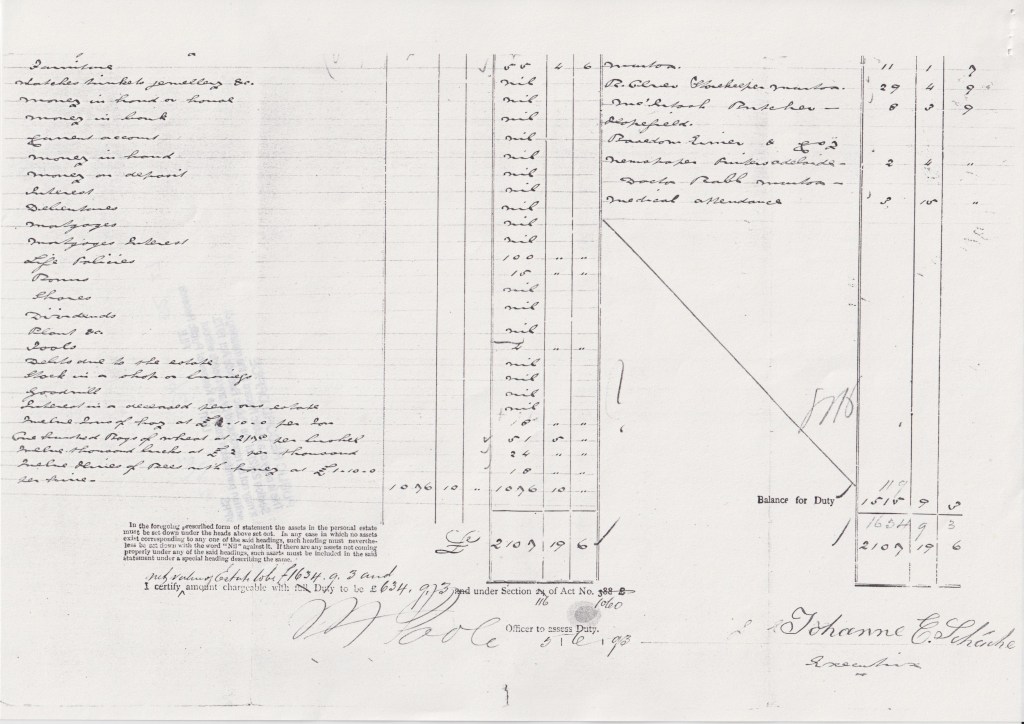 Furniture 55 4 6
Watches trinkets jewellery &c. nil
Money in hand or house nil
Money in bank nil
Current account nil
Money in hand nil
Money on deposit nil
Interest nil
Debentures nil
Mortgages nil
Mortgages Interest nil
Life Policies 100 " "
Bonus 15 " "
Shares nil
Dividends nil
Plant &c nil
Tools 2 " "
Debts due to the estate nil
Stock in a shop or business nil
Goodwill nil
Interest in a deceased persons estate nil
Twelve Tons of hay at £1-10-0 per ton 18 " "
One hundred Bags of wheat at per bushel 51 5 "
Twelve thousand bricks at £2 per thousand 24 " "
Twelve Hives of Bees with honey at £1-10-0 18 " "
per hive - 1076 10 " 1076 10 "
In the foregoing prescribed form of statement the assets in the personal estate
must be set down under the heads above set out. In any case in which no assets
exist corresponding to any one of the said headings, such heading must neverthe-
less be set down with the word "Nil" against it. If there are any assets not coming
properly under any of the said headings, such assets must be included in the said
statement under a special heading describing the same.
£ 2107 19 6
net value of Estate to be £1634. 9. 3 and
I certify amount chargeable with full Duty to be £634. 9. 3 and under Section 24 of Act No. 388
116 1060
Officer to assess Duty.
93
Minton. 11 1 7
Storekeeper Minton. 29 4 9
McIntosh Butcher - 8 3 9
Hopefield.
Basedow Eimer & Co
Newspaper Printers Adelaide - 2 4 "
Doctor Minton -
medical attendance 3 15 "
117
Balance for Duty 1515 9 3
1634 9 3
2107 19 6
Johanne E.
Executrix